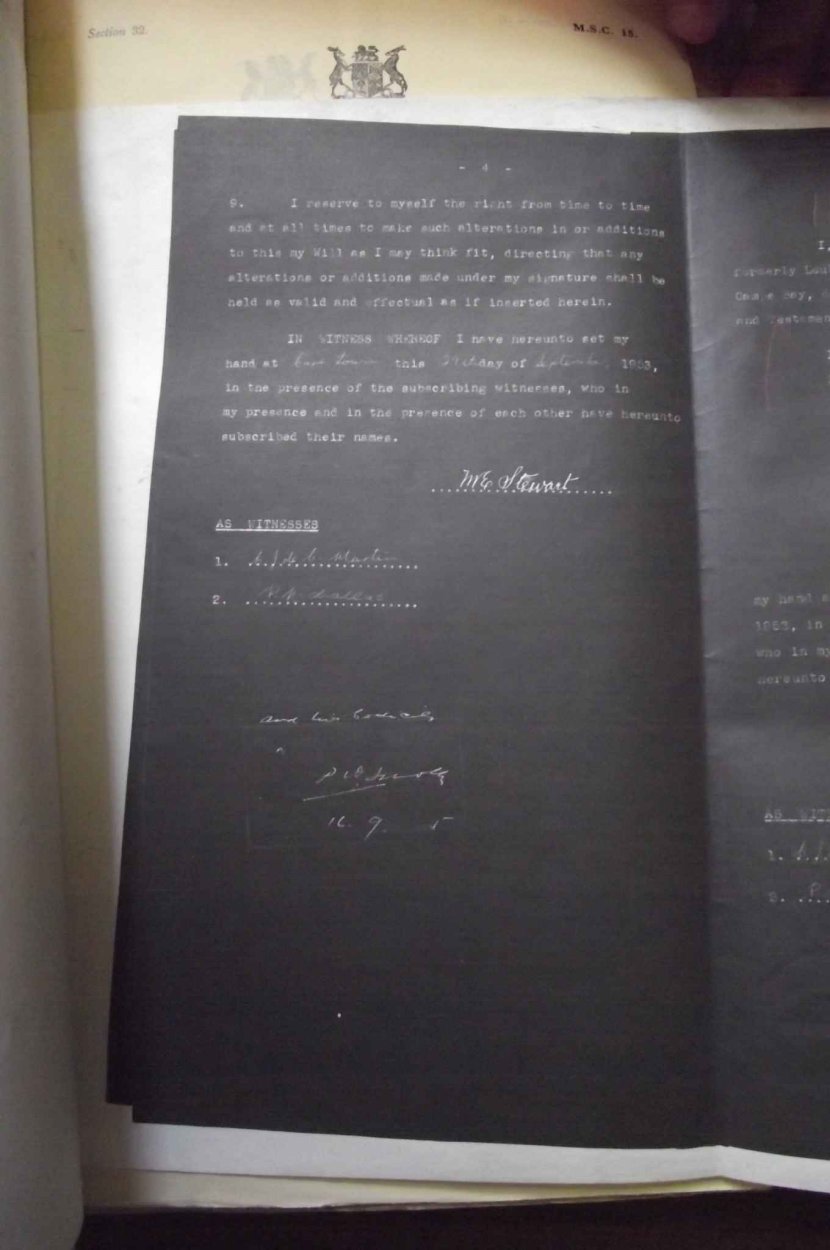 Section 32.
M.S.C. 18.
- 4 -
9. I reserve to myself the right from time to time
and at all times to make such alterations in or additions
to this my Will as I may think fit, directing that any
alterations or additions made under my signature shall be
held as valid and effectual as if inserted herein.
IN WITNESS WHEREOF I have hereunto set my
hand at Cape Town this day of September, 1953,
in the presence of the subscribing witnesses, who in
my presence and in the presence of each other have hereunto
subscribed their names.
M E Stewart
AS WITNESSES
1. Martin
2.
and
16. 9. 5
I,
formerly
Bay,
and Testament
my hand
1953, in
who in my
hereunto
AS WIT
1.
2. P.